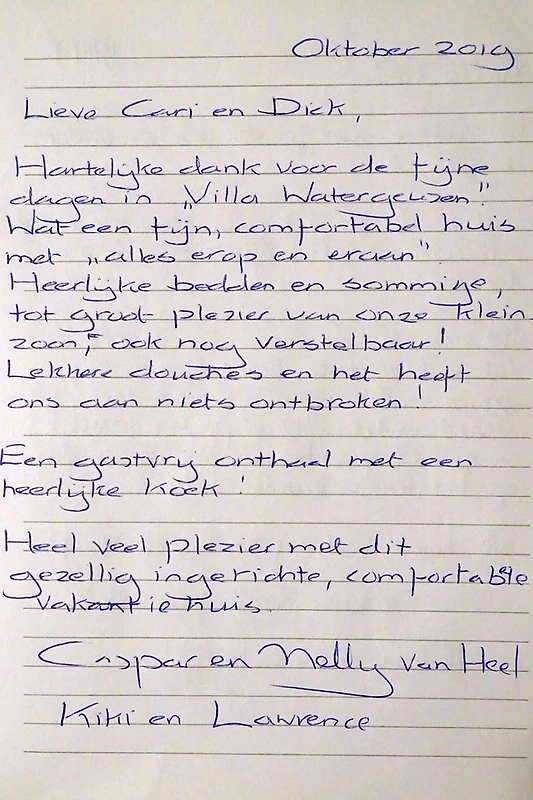 Oktober 2019
Lieve Cari en Dick,
Hartelijke dank voor de fijne
dagen in „Villa Watergeuzen".
Wat een fijn, comfortabel huis
met „alles erop en eraan".
Heerlijke bedden en sommige,
tot groot plezier van onze klein
zoon, ook nog verstelbaar!
Lekkere douches en het heeft
ons aan niets ontbroken!
Een gastvrij onthaal met een
heerlijke koek!
Heel veel plezier met dit
gezellig ingerichte, comfortabele
vakantiehuis.
Caspar en Nelly van Heel
Kiki en Lawrence